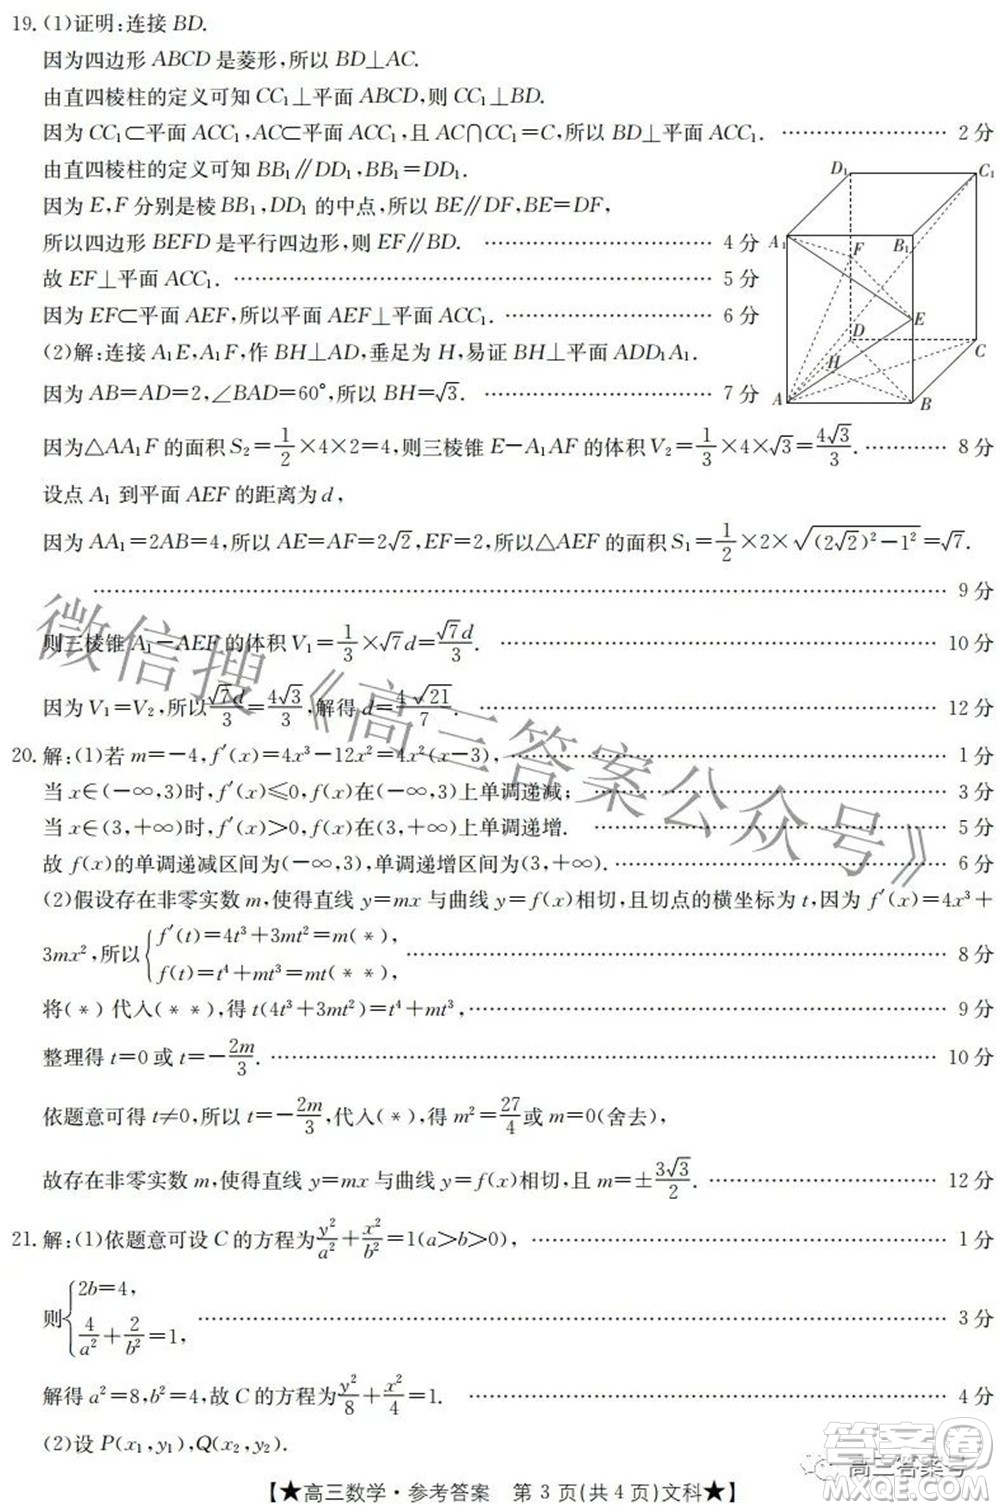 19. (1)证明:连接 BD.
因为四边形 ABCD 是菱形,所以 BD⊥AC.
由直四棱柱的定义可知 CC₁⊥平面 ABCD,则 CC₁⊥BD.
因为 CC₁⊂平面 ACC₁,AC⊂平面 ACC₁,且 AC∩CC₁=C,所以 BD⊥平面 ACC₁. …………………… 2 分
由直四棱柱的定义可知 BB₁∥DD₁.
因为 E,F 分别是棱 BB₁,DD₁ 的中点,所以 BE∥DF,BE=DF,
所以四边形 BEFD 是平行四边形,则 EF∥BD. …………………… 4 分
故 EF⊥平面 ACC₁. …………………… 5 分
因为 EF⊂平面 AEF,所以平面 AEF⊥平面 ACC₁. …………………… 6 分
(2)解:连接 A₁E,A₁F,作 BH⊥AD,垂足为 H,易证 BH⊥平面 ADD₁A₁.
因为 AB=AD=2,∠BAD=60°,所以 BH=√3. …………………… 7 分
D₁
C₁
A₁
B₁
F
E
D
H
C
A
B
因为△AA₁F 的面积 S₂=1/2×4×2=4,则三棱锥 E-A₁AF 的体积 V₂=1/3×4×√3=4√3/3. ………… 8 分
设点 A₁ 到平面 AEF 的距离为 d,
因为 AA₁=2AB=4,所以 AE=AF=2√2,EF=2,所以△AEF 的面积 S₁=1/2×2×√((2√2)²-1²)=√7.
…………………… 9 分
则三棱锥 A₁-AEF 的体积 V₁=1/3×√7d=√7d/3. …………………… 10 分
因为 V₁=V₂,所以√7d/3=4√3/3,解得 d=4√21/7. …………………… 12 分
20. 解:(1)若 m=-4,f′(x)=4x³-12x²=4x²(x-3), …………………… 1 分
当 x∈(-∞,3)时,f′(x)≤0,f(x)在(-∞,3)上单调递减; …………………… 3 分
当 x∈(3,+∞)时,f′(x)>0,f(x)在(3,+∞)上单调递增. …………………… 5 分
故 f(x)的单调递减区间为(-∞,3),单调递增区间为(3,+∞). …………………… 6 分
(2)假设存在非零实数 m,使得直线 y=mx 与曲线 y=f(x)相切,且切点的横坐标为 t,因为 f′(x)=4x³+
3mx²,所以{f′(t)=4t³+3mt²=m(*), f(t)=t⁴+mt³=mt(**), …………………… 8 分
将(*)代入(**),得 t(4t³+3mt²)=t⁴+mt³, …………………… 9 分
整理得 t=0 或 t=-2m/3. …………………… 10 分
依题意可得 t≠0,所以 t=-2m/3,代入(*),得 m²=27/4或 m=0(舍去),
故存在非零实数 m,使得直线 y=mx 与曲线 y=f(x)相切,且 m=±3√3/2. …………………… 12 分
21. 解:(1)依题意可设 C 的方程为y²/a²+x²/b²=1(a>b>0), …………………… 1 分
则{2b=4, 4/a²+2/b²=1, …………………… 3 分
解得 a²=8,b²=4,故 C 的方程为y²/8+x²/4=1. …………………… 4 分
(2)设 P(x₁,y₁),Q(x₂,y₂).
【★高三数学·参考答案 第 3 页(共 4 页)文科★】
微信搜《高三答案公众号》
高三答案号
答案圈
MXQE.COM